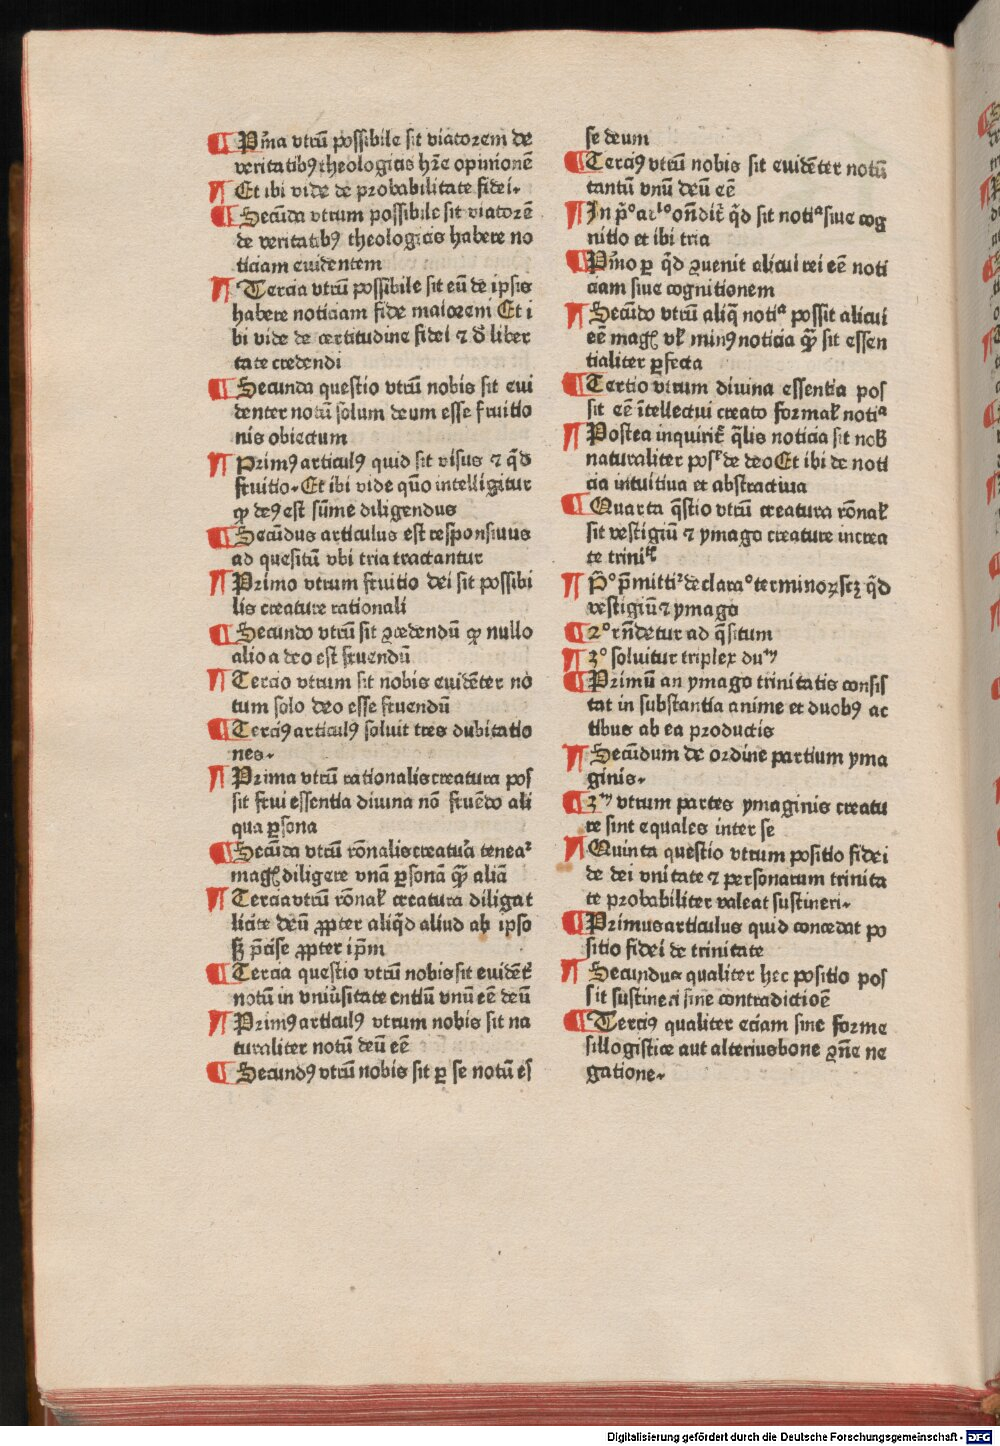 ¶ Pͥma vtrū possibile sit viatorem de
veritatibꝰ theologicis hr̄e opinionē
¶ Et ibi vide de probabilitate fidei.
¶ Secūda vtrum possibile sit viatorē
de veritatibꝰ theologicis habere no
ticiam euidentem
¶ Tercia vtrū possibile sit eū de ipsis
habere noticiam fide maiorem Et i
bi vide de certitudine fidei ⁊ đ liber
tate credendi
¶ Secunda questio vtrū nobis sit eui
denter notū solum deum esse fruitio
nis obiectum
¶ Primꝰ articulꝰ quid sit visus ⁊ qͥd
fruitio. Et ibi vide quō intelligitur
ꝙ deꝰ est sūme diligendus
¶ Secūdus articulus est responsiuus
ad quesitū vbi tria tractantur
¶ Primo vtrum fruitio dei sit possibi
lis creature rationali
¶ Secundo vtrū sit ꝯcedendū ꝙ nullo
alio a deo est fruendū
¶ Tercio vtrum sit nobis euidēter no
tum solo deo esse fruendū
¶ Terciꝰ articulꝰ soluit tres dubitatio
nes.
¶ Prima vtrū rationalis creatura pos
sit frui essentia diuina nō fruēdo ali
qua ꝑsona
¶ Secūda vtrū rōnalis creatura teneaᷣ
magꝭ diligere vnā ꝑsonā ꝙ̄ aliā
¶ Tercia vtrū rōnał creatura diligat
licite deū ꝓpter aliqͥd aliud ab ipso
sꝫ p̄cise ꝓpter ip̄m
¶ Tercia questio vtrū nobis sit euidēt᷑
notū in vniu̾sitate entiū vnū eē deū
¶ Primꝰ articulꝰ vtrum nobis sit na
turaliter notū deū eē
¶ Secundꝰ vtrū nobis sit ꝑ se notū es
se deum
¶ Terciꝰ vtrū nobis sit euidēter notū
tantū vnū deū eē
¶ In p̄º arlº on̄dit᷑ qͥd sit notiª siue cog
nitio et ibi tria
¶ Pͥmo ꝑ qͥd ꝯuenit alicui rei eē noti
ciam siue cognitionem
¶ Secūdo vtrū aliq̄ notiª possit alicui
eē magꝭ vł minꝰ noticia ꝙ̄ sit essen
tialiter ꝑfecta
¶ Tertio vtrum diuina essentia pos
sit eē ītellectui creato formał notiª
¶ Postea inquirit᷑ q̄lis noticia sit nob̄
naturaliter posͥ de deo Et ibi de noti
cia intuitiua et abstractiua
¶ Quarta q̄stio vtrū creatura rōnał
sit vestigiū ⁊ ymago creature increa
te triniᵗꝭ
¶ P̄º p̄mittiᷣ declaraº terminoꝝ scꝫ qͥd
vestigiū ⁊ ymago
¶ 2º rn̄detur ad q̄situm
¶ 3º soluitur triplex duᵐ
¶ Primū an ymago trinitatis consis
tat in substantia anime et duobꝰ ac
tibus ab ea productis
¶ Secūdum de ordine partium yma
ginis.
¶ 3ᵐ vtrum partes ymaginis creatu
re sint equales inter se
¶ Quinta questio vtrum positio fidei
de dei vnitate ⁊ personarum trinita
te probabiliter valeat sustineri.
¶ Primus articulus quid concedat po
sitio fidei de trinitate
¶ Secundus qualiter hec positio pos
sit sustineri sine contradictioē
¶ Terciꝰ qualiter eciam sine forme
sillogistice aut alterius bone ꝯn̄e ne
gatione.
Digitalisierung gefördert durch die Deutsche Forschungsgemeinschaft - DFG